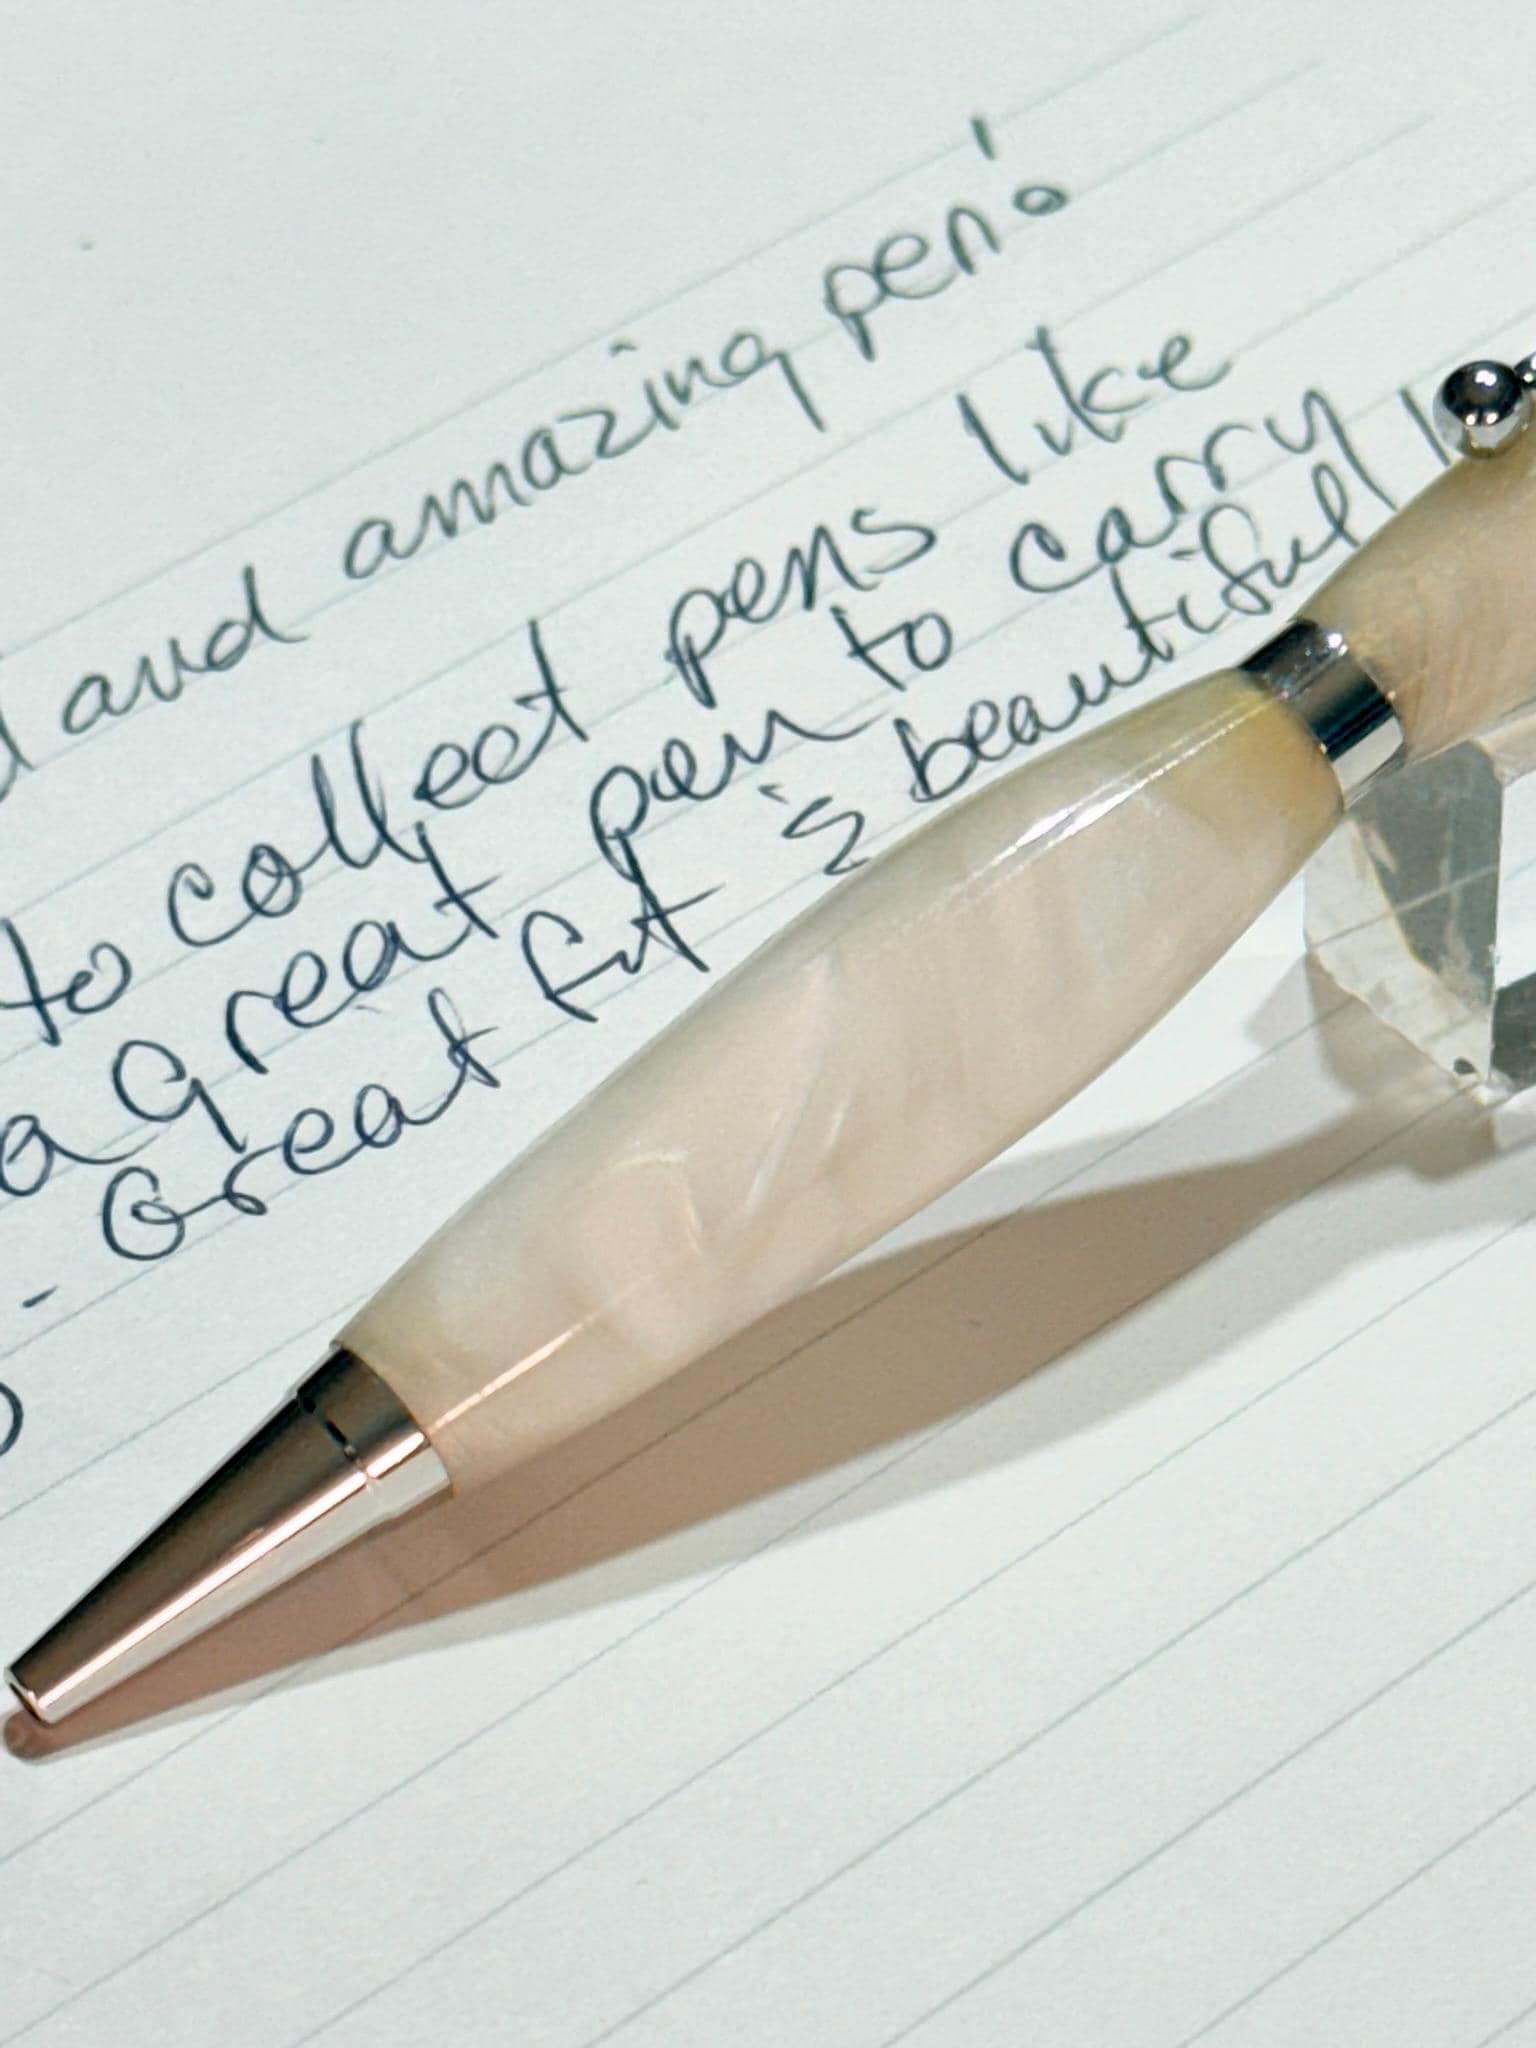 and amazing pen!
to collect pens like
a great pen to carry
- Great fit is beautiful